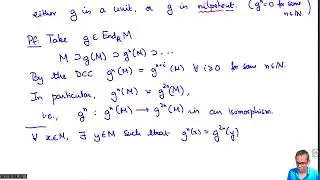 either g is a unit, or g is nilpotent. (gⁿ=0 for some n∈ℕ)
Pf: Take g ∈ End_R M
M ⊃ g(M) ⊃ g²(M) ⊃ ...
By the DCC gⁿ(M) = gⁿ⁺ⁱ(M) ∀ i≥0 for some n∈ℕ.
In particular, gⁿ(M) = g²ⁿ(M),
i.e., gⁿ : gⁿ(M) → g²ⁿ(M) is an isomorphism.
∀ x∈M, ∃ y∈M such that gⁿ(x) = g²ⁿ(y)